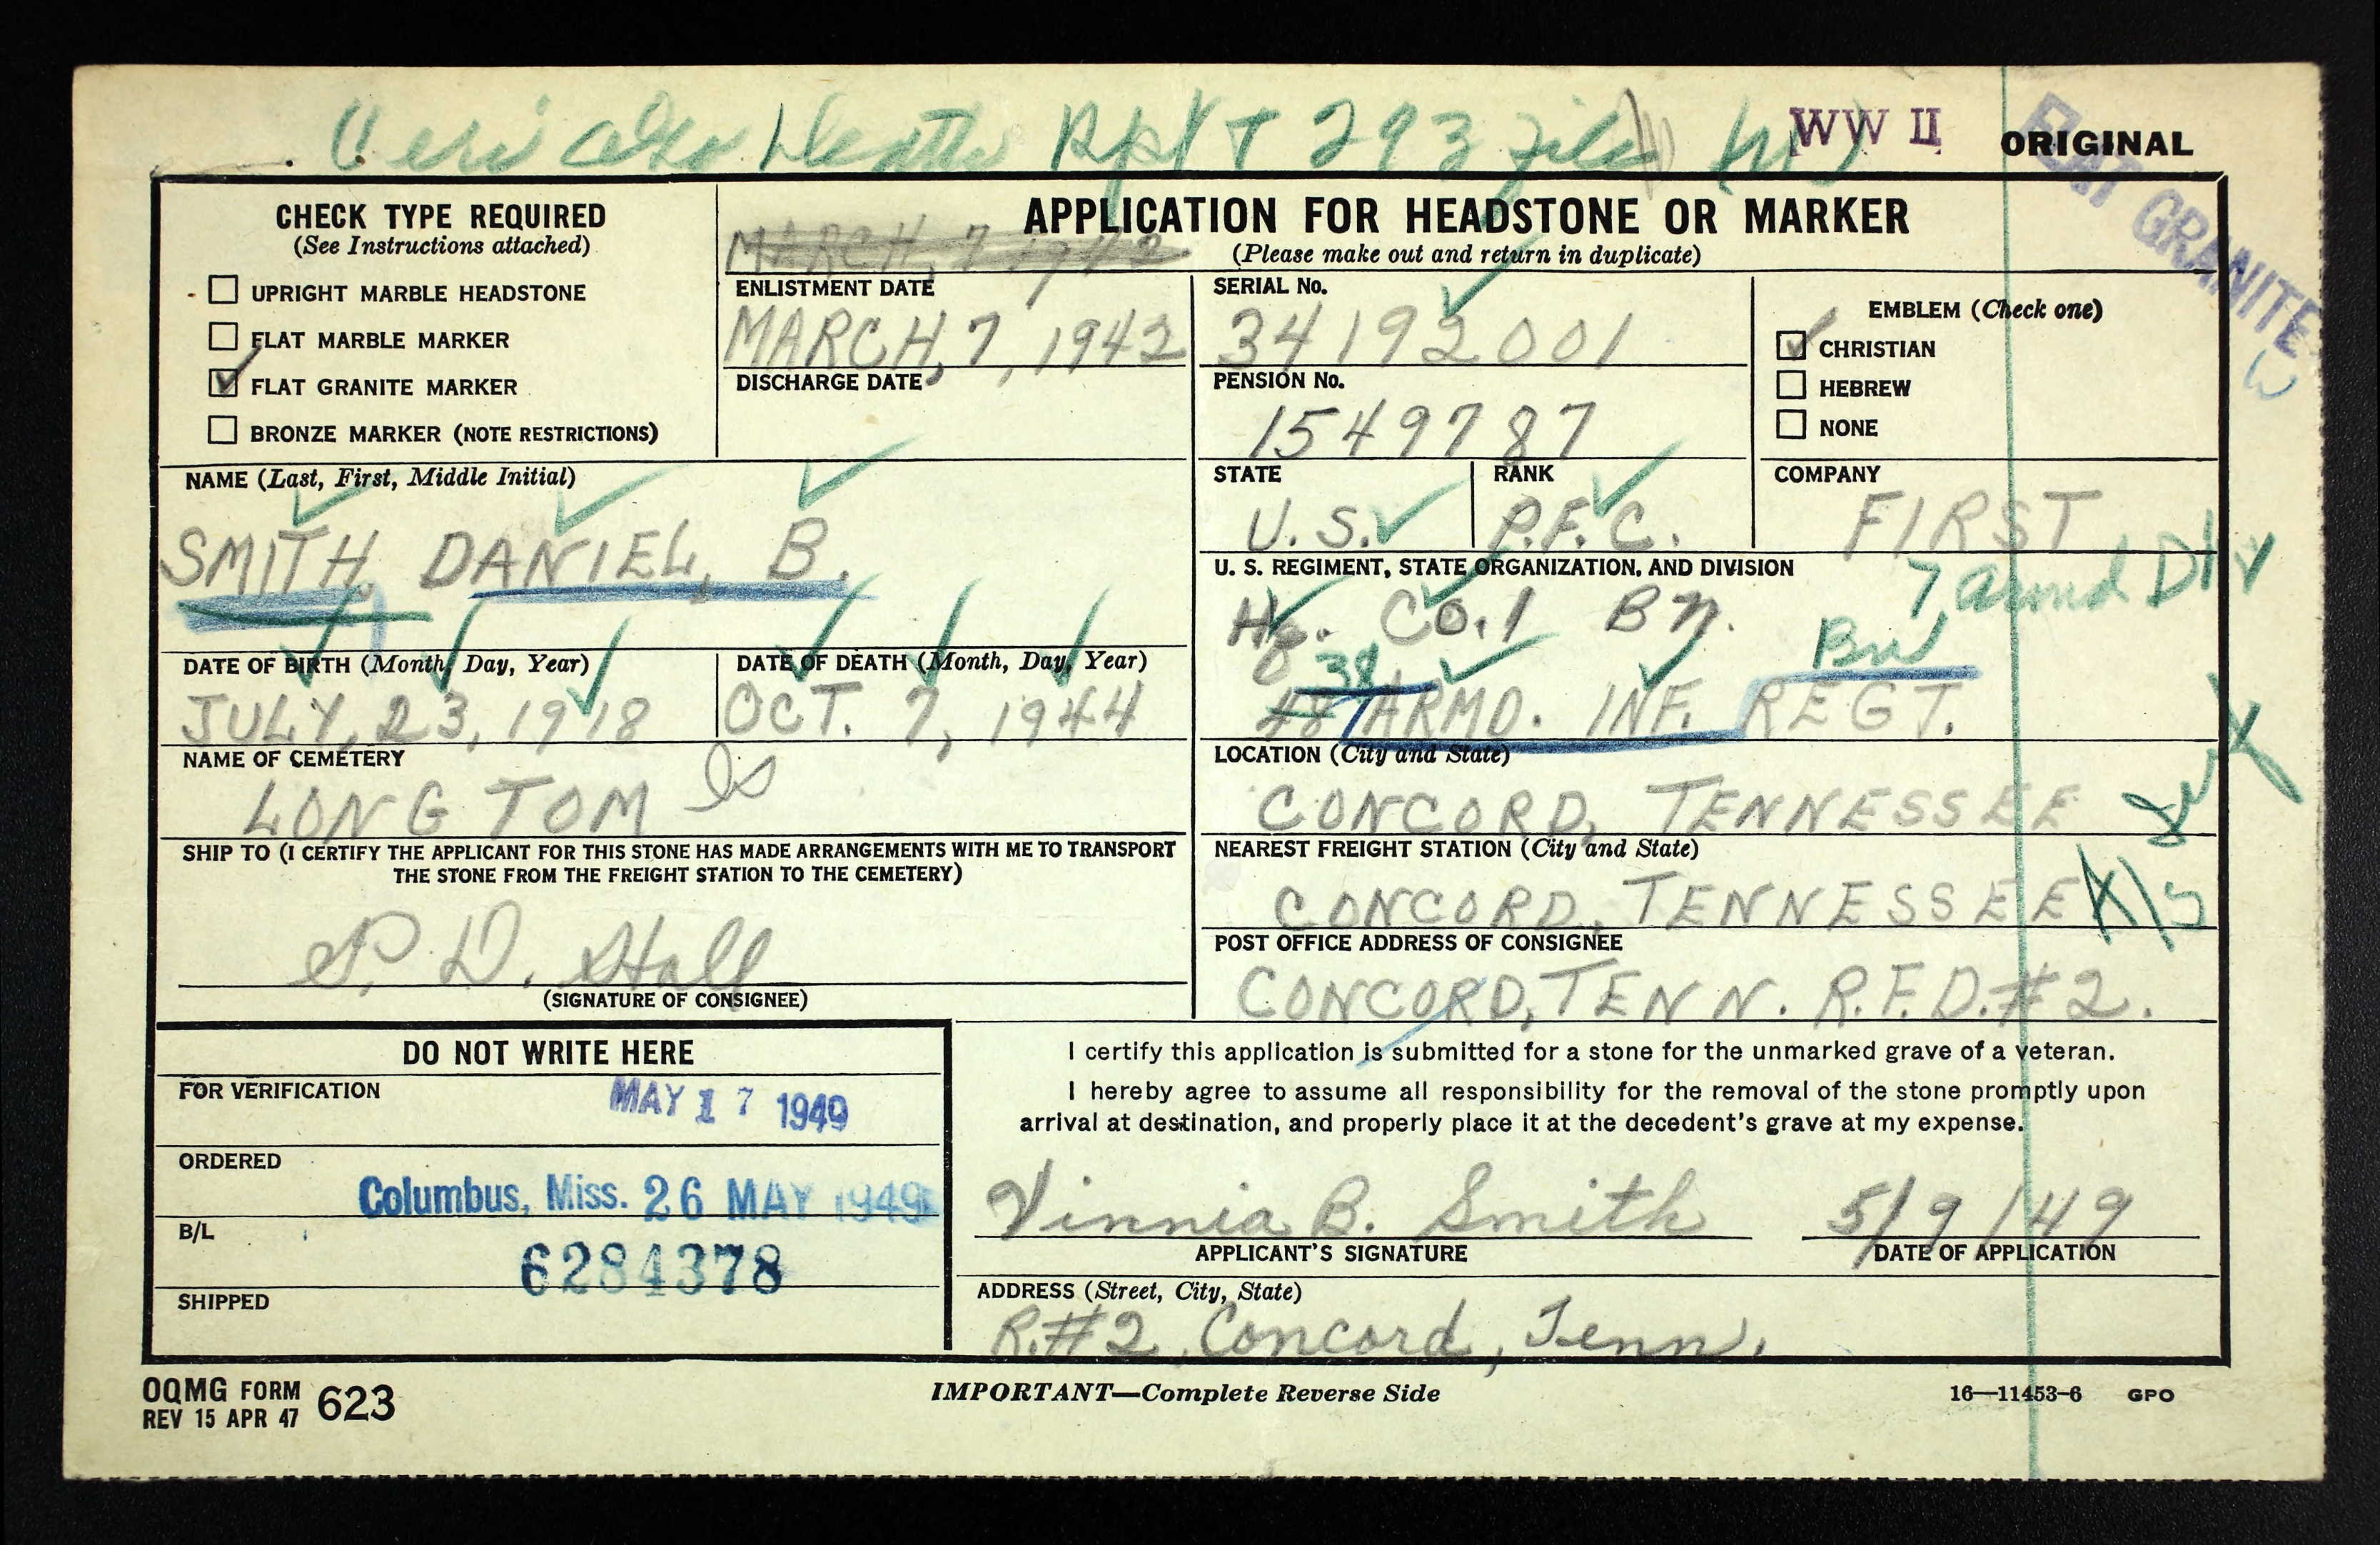 Death Rpt & 293 file
WW II
ORIGINAL
FLAT GRANITE
CHECK TYPE REQUIRED
(See Instructions attached)
UPRIGHT MARBLE HEADSTONE
FLAT MARBLE MARKER
FLAT GRANITE MARKER
BRONZE MARKER (NOTE RESTRICTIONS)
APPLICATION FOR HEADSTONE OR MARKER
(Please make out and return in duplicate)
MARCH, 7, 1942
ENLISTMENT DATE
MARCH, 7, 1942
DISCHARGE DATE
SERIAL No.
34192001
PENSION No.
1549787
EMBLEM (Check one)
CHRISTIAN
HEBREW
NONE
NAME (Last, First, Middle Initial)
SMITH, DANIEL, B.
STATE
U.S.
RANK
P.F.C.
COMPANY
FIRST
U. S. REGIMENT, STATE ORGANIZATION, AND DIVISION
7 Armd Div
Hq. Co. 1 Bn.
38 Bn
48 ARMD. INF. REGT.
DATE OF BIRTH (Month, Day, Year)
JULY, 23, 1918
DATE OF DEATH (Month, Day, Year)
OCT. 7, 1944
NAME OF CEMETERY
LONG TOM
LOCATION (City and State)
CONCORD, TENNESSEE
SHIP TO (I CERTIFY THE APPLICANT FOR THIS STONE HAS MADE ARRANGEMENTS WITH ME TO TRANSPORT
THE STONE FROM THE FREIGHT STATION TO THE CEMETERY)
NEAREST FREIGHT STATION (City and State)
CONCORD, TENNESSEE
S. D. Hall
(SIGNATURE OF CONSIGNEE)
POST OFFICE ADDRESS OF CONSIGNEE
CONCORD, TENN. R.F.D. #2.
DO NOT WRITE HERE
FOR VERIFICATION
MAY 17 1949
ORDERED
Columbus, Miss. 26 MAY 1949
B/L
6284378
SHIPPED
I certify this application is submitted for a stone for the unmarked grave of a veteran.
I hereby agree to assume all responsibility for the removal of the stone promptly upon
arrival at destination, and properly place it at the decedent's grave at my expense.
Vinnia B. Smith 5/9/49
APPLICANT'S SIGNATURE
DATE OF APPLICATION
ADDRESS (Street, City, State)
R.#2, Concord, Tenn.
OQMG FORM 623
REV 15 APR 47
IMPORTANT—Complete Reverse Side
16—11453-6 GPO